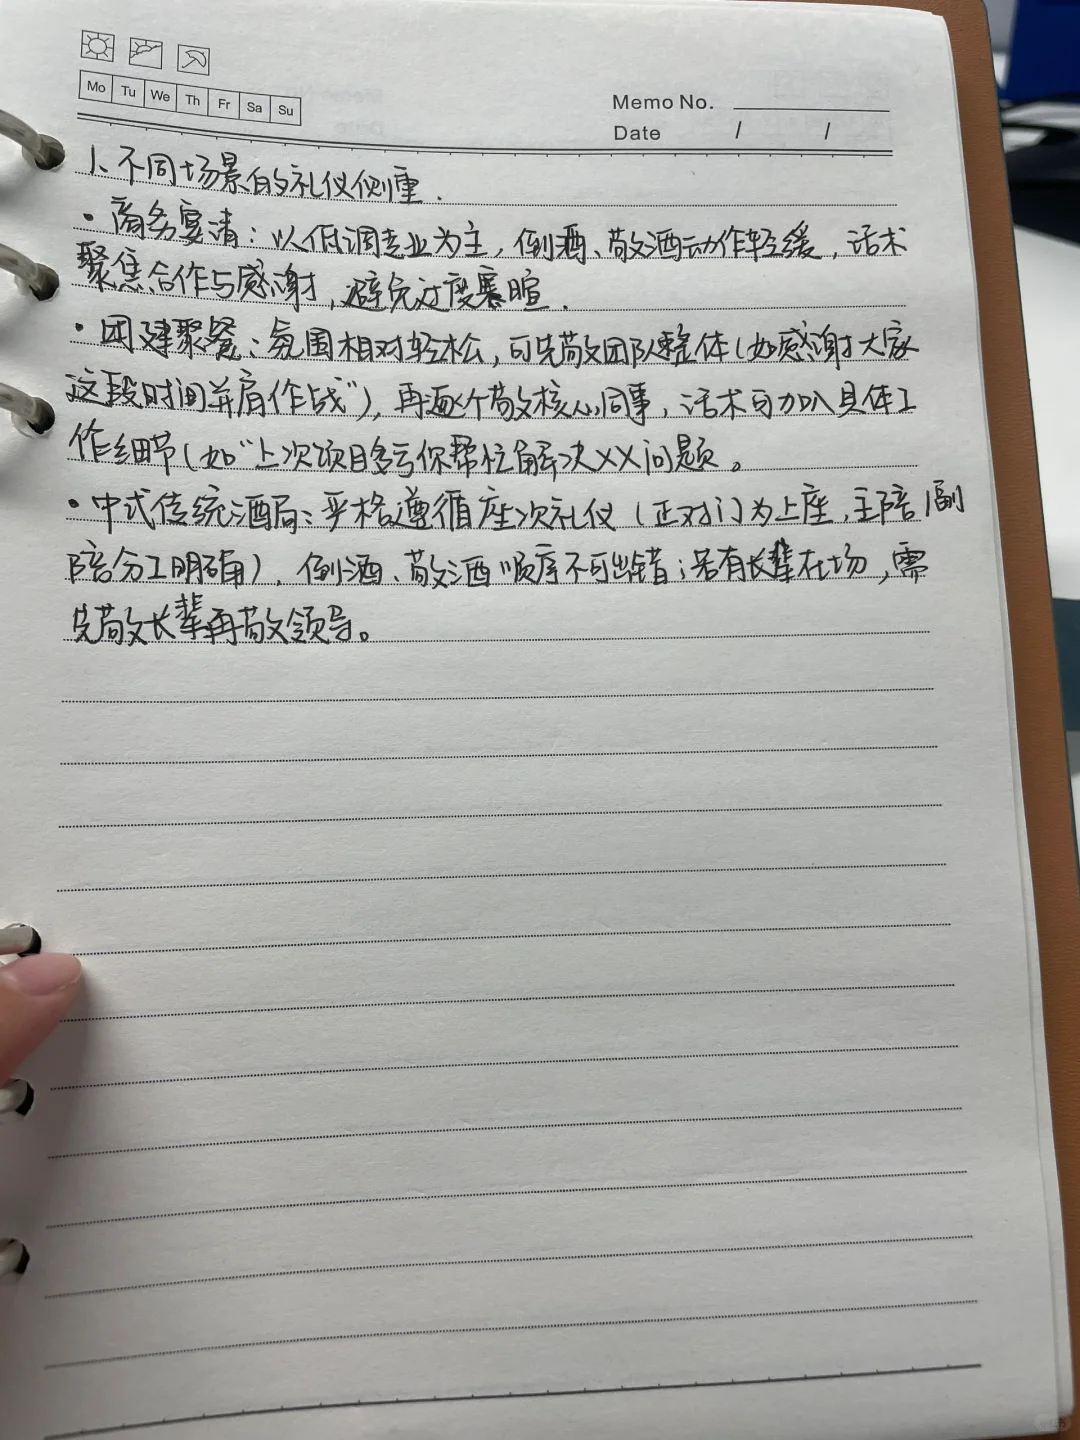 Mo Tu We Th Fr Sa Su
Memo No.
Date / /
1、不同场景的礼仪侧重.
· 商务宴请：以低调专业为主，倒酒、敬酒动作轻缓，话术
聚焦合作与感谢，避免过度寒暄.
· 团建聚餐：氛围相对轻松，可先敬团队整体（如感谢大家
这段时间并肩作战”），再逐个敬核心同事，话术可加入具体工
作细节（如“上次项目多亏你帮忙解决XX问题。
· 中式传统酒局：严格遵循座次礼仪（正对门为上座，主陪/副
陪分工明确），倒酒、敬酒顺序不可出错；若有长辈在场，需
先敬长辈再敬领导。